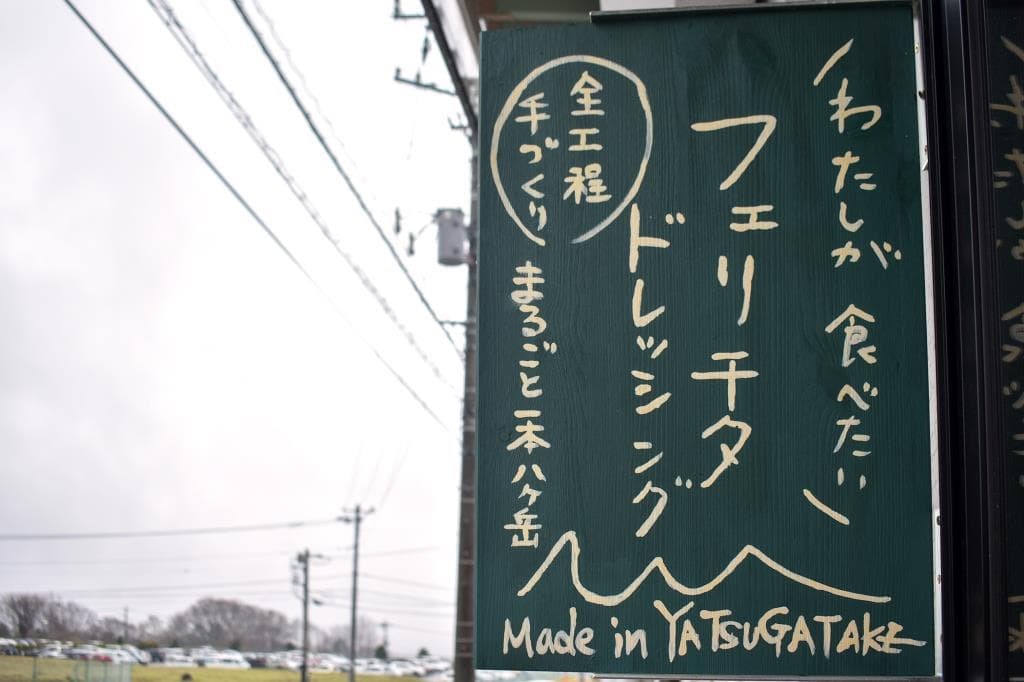 わたしが 食べたい
フェリチタ
ドレッシング
全工程
手づくり
まるごと一本八ヶ岳
Made in YATSUGATAKE